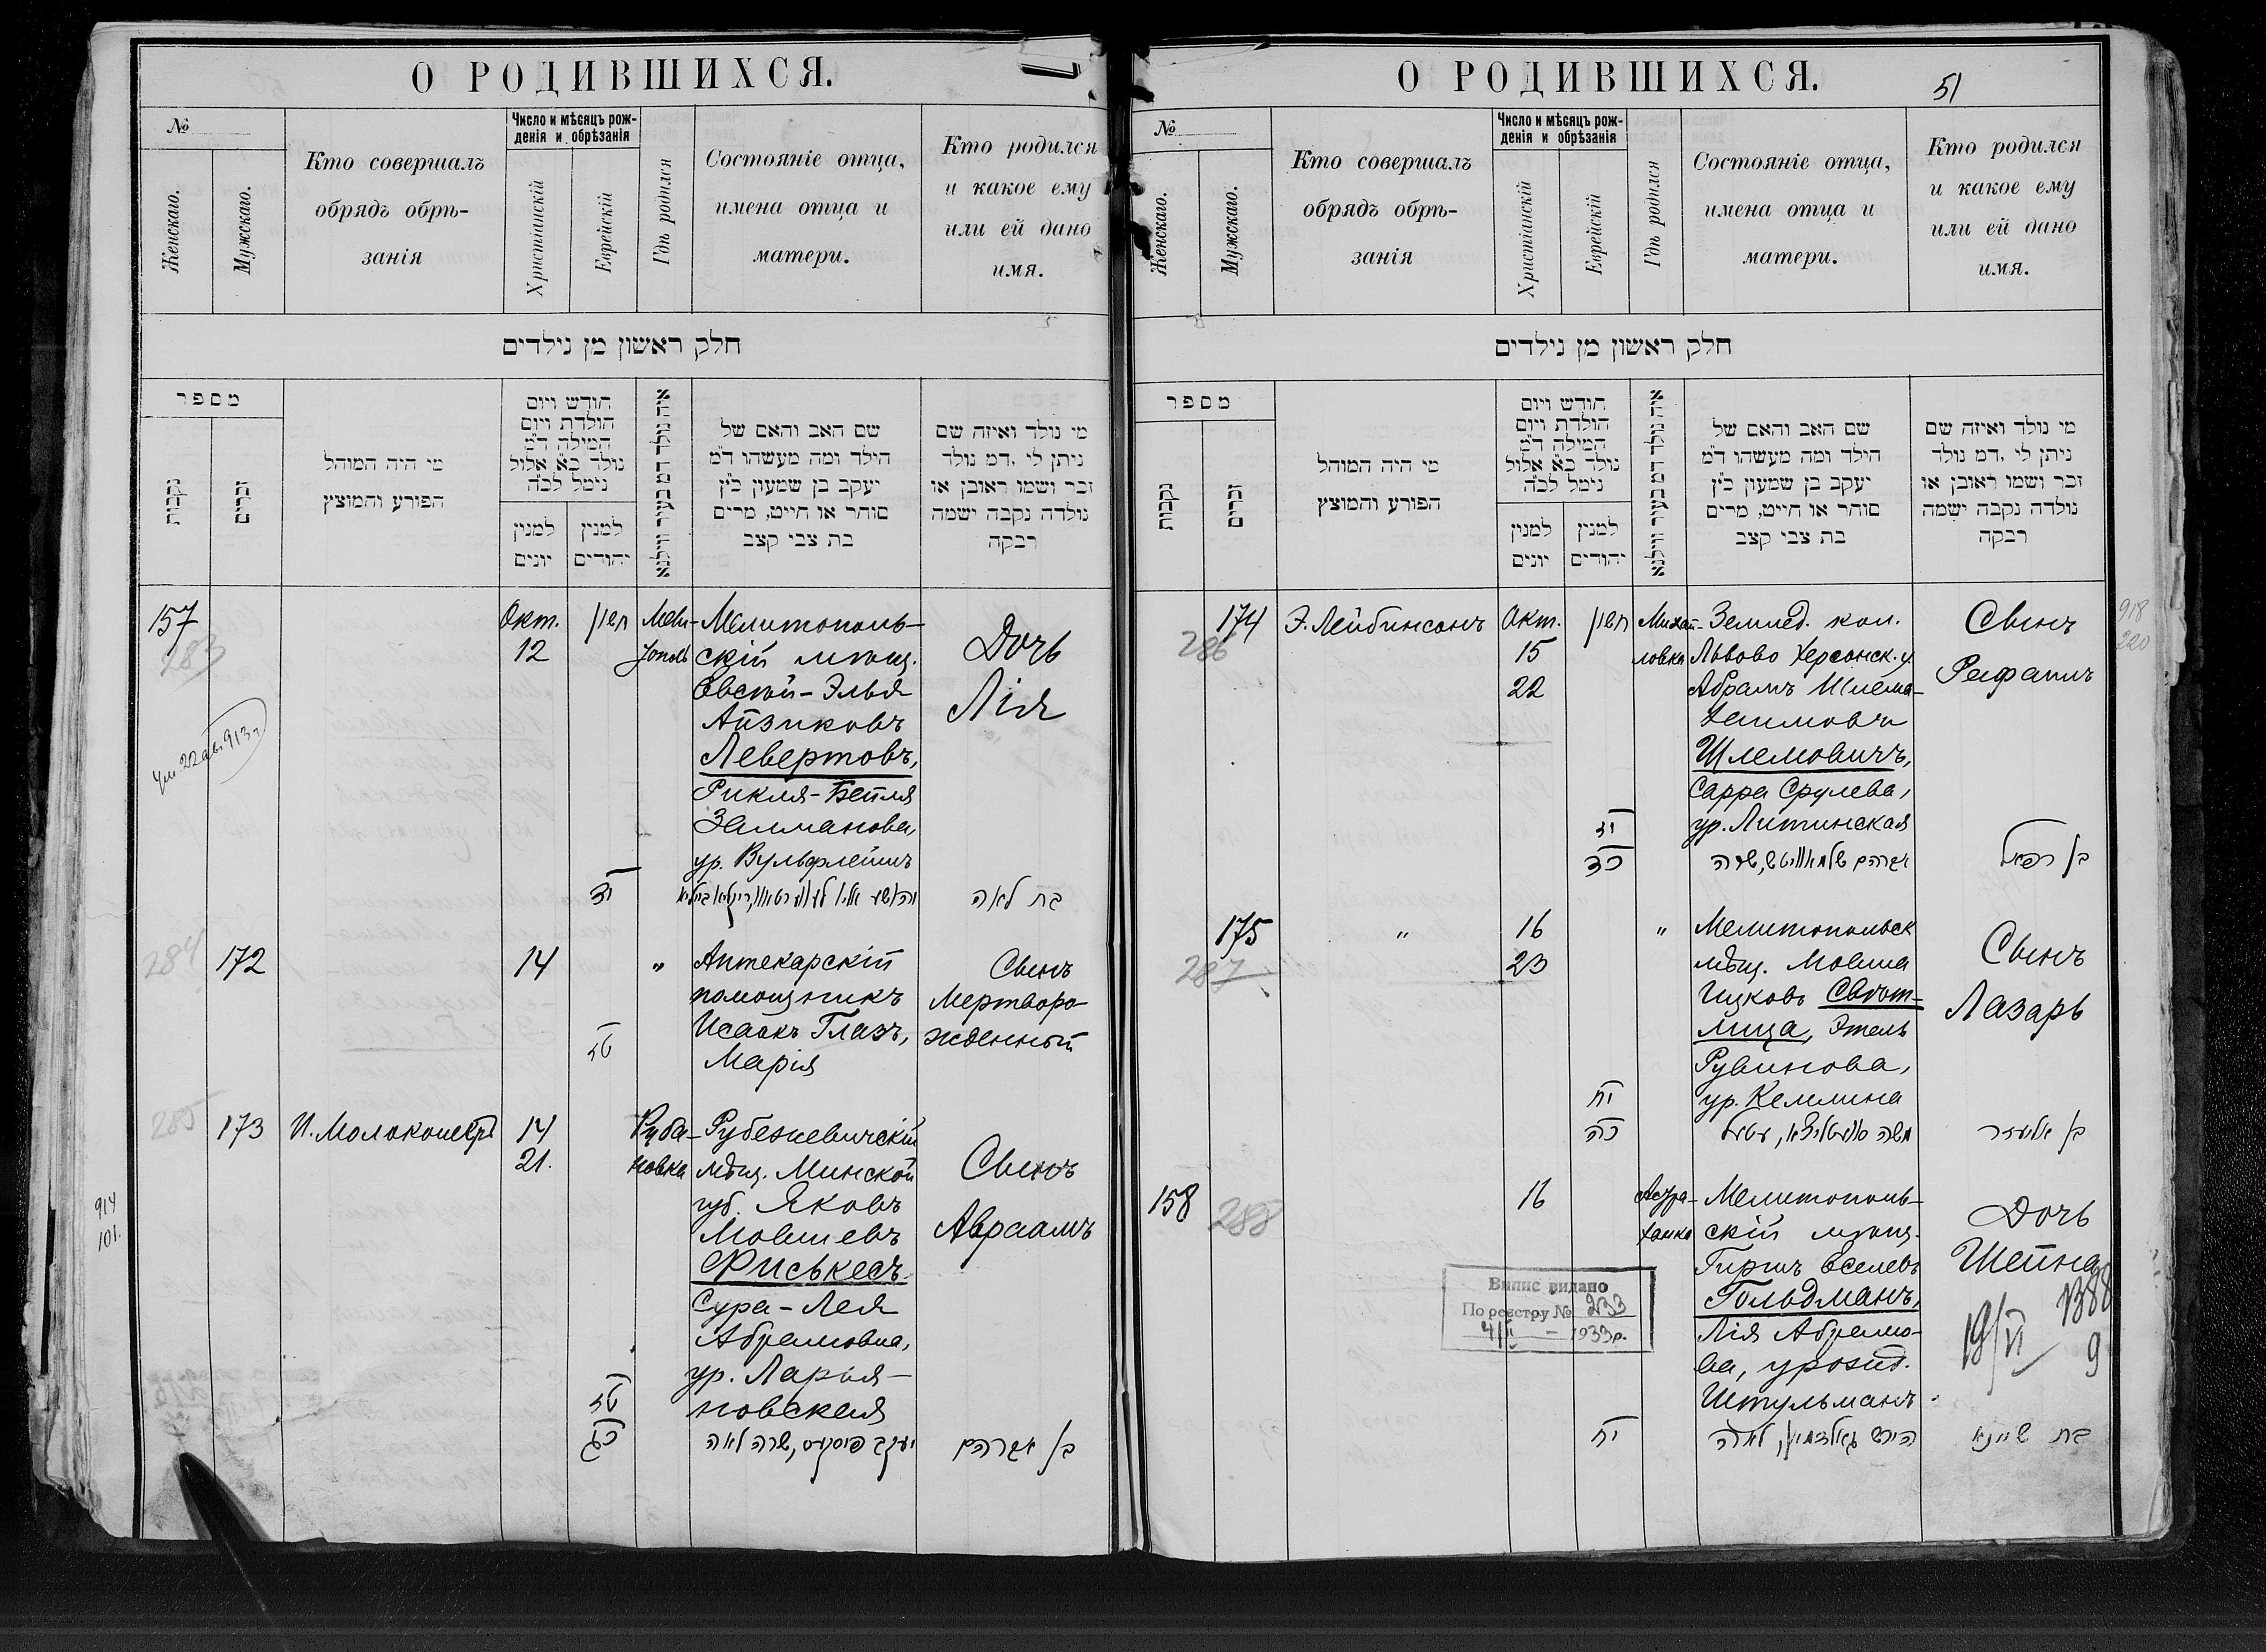 О РОДИВШИХСЯ.
№
Женскаго.
Мужскаго.
Кто совершалъ
обрядъ обрѣ-
занія
Число и мѣсяцъ рож-
денія и обрѣзанія
Христіанскій
Еврейскій
Гдѣ родился
Состояніе отца,
имена отца и
матери.
Кто родился
и какое ему
или ей дано
имя.
חלק ראשון מן נילדים
מספר
נקבות
זכרים
מי היה המוהל
הפורע והמוצץ
חודש ויום
הולדת ויום
המילה ד״מ
נולד כ״א אלול
נימל לכ״ה
למנין
יונים
למנין
יהודים
איה נולד דמ בעיר ווילנא
שם האב והאם של
הילד ומה מעשהו ד״מ
יעקב בן שמעון כ״ץ
סוחר או חייט, מרים
בת צבי קצב
מי נולד ואיזה שם
ניתן לי, דמ נולד
זכר ושמו ראובן או
נולדה נקבה ישמה
רבקה
157
283
Окт.
12
חשון
Мели-
тополь
Мелитополь-
скій мѣщ.
Овсѣй-Элья
Айзиковъ
Левертовъ,
Рикля-Бейля
Залманова,
ур. Вульфлейшъ
Дочь
Лія
Ум. 22 авг. 913 г.
יד
בת לאה
284
172
14
"
Аптекарскій
помощникъ
Исаакъ Глазъ,
Марія
Сынъ
Мертворо-
жденный
טז
285
173
14
21.
Руба-
новка
Рубежевичскій
мѣщ. Минской
губ. Яковъ
Мовшевъ
Фиськесъ
Сура-Лея
Абрамовна,
ур. Ларья-
новская
Сынъ
Авраамъ
914
101.
טז
כג
יעקב פיסקעס, שרה לאה
בן אברהם
О РОДИВШИХСЯ.
51
№
Женскаго.
Мужскаго.
Кто совершалъ
обрядъ обрѣ-
занія
Число и мѣсяцъ рож-
денія и обрѣзанія
Христіанскій
Еврейскій
Гдѣ родился
Состояніе отца,
имена отца и
матери.
Кто родился
и какое ему
или ей дано
имя.
חלק ראשון מן נילדים
מספר
נקבות
זכרים
מי היה המוהל
הפורע והמוצץ
חודש ויום
הולדת ויום
המילה ד״מ
נולד כ״א אלול
נימל לכ״ה
למנין
יונים
למנין
יהודים
איה נולד דמ בעיר ווילנא
שם האב והאם של
הילד ומה מעשהו ד״מ
יעקב בן שמעון כ״ץ
סוחר או חייט, מרים
בת צבי קצב
מי נולד ואיזה שם
ניתן לי, דמ נולד
זכר ושמו ראובן או
נולדה נקבה ישמה
רבקה
174
286
Э. Лейбинсонъ
Окт.
15
22
חשון
Михай-
ловка
Землед. кол.
Львово Херсонск. у.
Абрамъ Шлема-
Хаимовъ
Шлемовичъ,
Сарра Срулева,
ур. Литинская
Сынъ
Рафаилъ
918
220
יז
כד
בן רפאל
175
287
"
16
23
"
Мелитопольск
мѣщ. Мовша
Ицковъ Свѣт-
лица, Этель
Рувинова,
ур. Келлина
Сынъ
Лазарь
יח
כה
בן אליעזר
158
288
16
Астра-
ханка
Мелитополь-
скій мѣщ.
Гиршъ Еселевъ
Гольдманъ,
Лія Абрамо-
ва, урожд.
Штульманъ
Дочь
Шейна
Випис видано
По реєстру № 233
1933 р.
יח
הירש גאלדמאן, לאה
בת שיינא